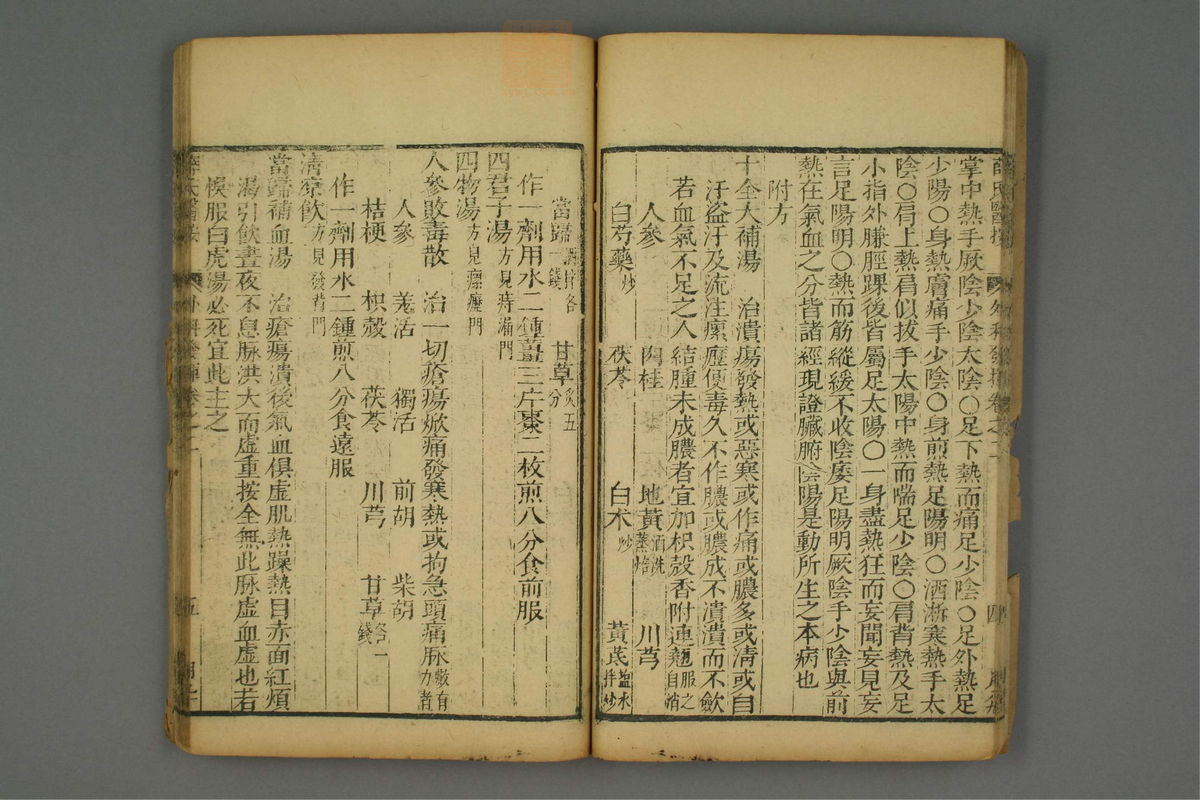 薛氏醫按 外科發揮卷之二 四
掌中熱手厥陰少陰太陰〇足下熱而痛足少陰〇足外熱足
少陽〇身熱膚痛手少陰〇身前熱足陽明〇洒淅寒熱手太
陰〇肩上熱肩似拔手太陽中熱而喘足少陰〇肩背熱及足
小指外臁脛踝後皆屬足太陽〇一身盡熱狂而妄聞妄見妄
言足陽明〇熱而筋縱緩不收陰痿足陽明厥陰手少陰與前
熱在氣血之分皆諸經現證臟腑陰陽是動所生之本病也
附方
十全大補湯 治潰瘍發熱或惡寒或作痛或膿多或清或自
汗盜汗及流注瘰癧便毒久不作膿或膿成不潰潰而不斂
若血氣不足之人結腫未成膿者宜加枳殼香附連翹服之自消
人參 肉桂 地黃酒洗蒸焙 川芎
白芍藥炒 茯苓 白朮炒 黃芪鹽水拌炒
當歸酒拌各一錢 甘草炙五分
作一劑用水二鍾薑三片棗二枚煎八分食前服
四君子湯方見痔漏門
四物湯方見瘰癧門
人參敗毒散 治一切瘡瘍焮痛發寒熱或拘急頭痛脉數有力者
人參 羌活 獨活 前胡 柴胡
桔梗 枳殼 茯苓 川芎 甘草各一錢
作一劑用水二鍾煎八分食遠服
清凉飲方見發背門
當歸補血湯 治瘡瘍潰後氣血俱虛肌熱躁熱目赤面紅煩
渴引飲晝夜不息脉洪大而虛重按全無此脉虛血虛也若
悞服白虎湯必死宜此主之
薛氏醫按 外科發揮卷之二 五